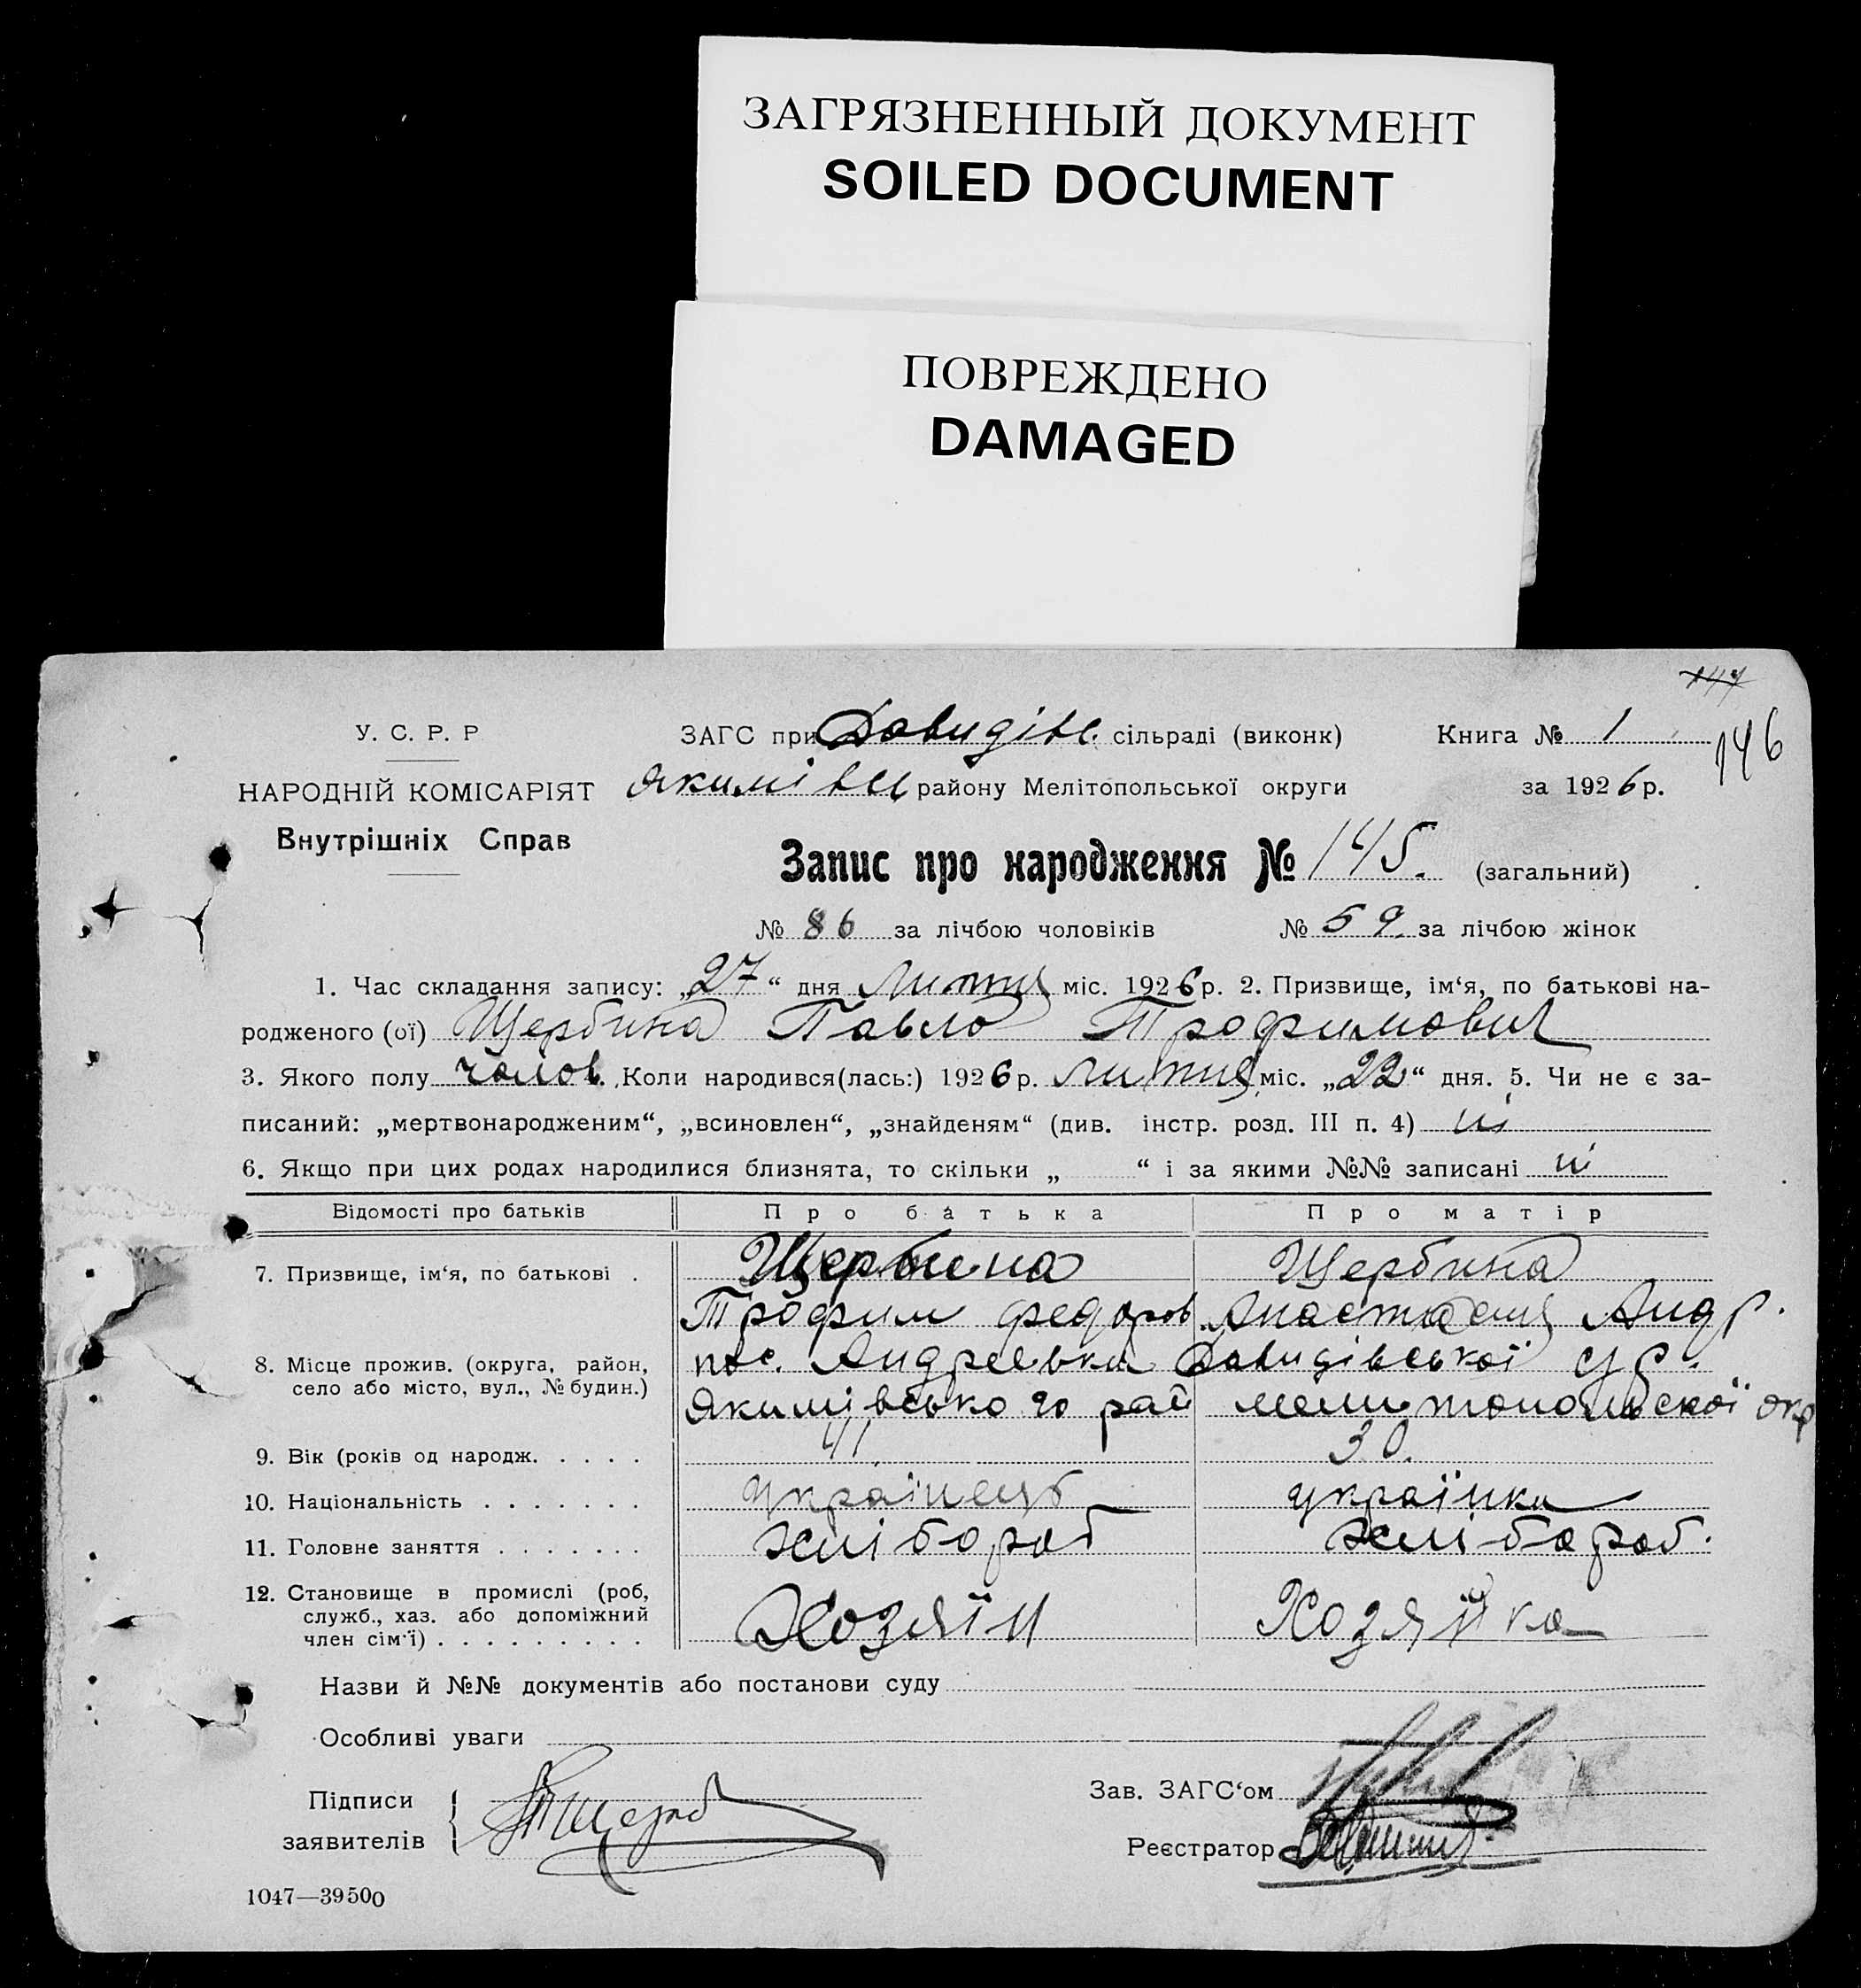 ЗАГРЯЗНЕННЫЙ ДОКУМЕНТ
SOILED DOCUMENT
ПОВРЕЖДЕНО
DAMAGED
У. С. Р. Р
НАРОДНІЙ КОМІСАРІЯТ
Внутрішніх Справ
ЗАГС при Давидівс. сільраді (виконк) Книга № 1
146
Якимівсь району Мелітопольської округи за 1926 р.
Запис про народження № 145. (загальний)
№ 86 за лічбою чоловіків № 59. за лічбою жінок
1. Час складання запису: „27“ дня Лютня міс. 1926 р. 2. Призвище, ім‘я, по батькові на-
родженого (ої) Щербина Павло Трофимович
3. Якого полу чолов. Коли народився(лась:) 1926 р. лютня міс. „22“ дня. 5. Чи не є за-
писаний: „мертвонародженим“, „всиновлен“, „знайденям“ (див. інстр. розд. III п. 4) ні
6. Якщо при цих родах народилися близнята, то скільки „ “ і за якими №№ записані ні
Відомості про батьків Про батька Про матір
7. Призвище, ім‘я, по батькові . Щербина Щербина
Трофим Федоров Анастасия Андр.
8. Місце прожив. (округа, район, пос. Андреевка Давидівської с/р.
село або місто, вул., № будин.) Якимівського рай мелитопольскої окр
9. Вік (років од народж. . . . . 41. 30.
10. Національність . . . . . . . українець українка
11. Головне заняття . . . . . . . хлібороб хлібороб.
12. Становище в промислі (роб,
служб., хаз. або допоміжний
член сім‘ї) . . . . . . . . . Хозяїн Хозяйка
Назви й №№ документів або постанови суду
Особливі уваги
Підписи
заявителів
Зав. ЗАГС‘ом
Реєстратор
1047—39500